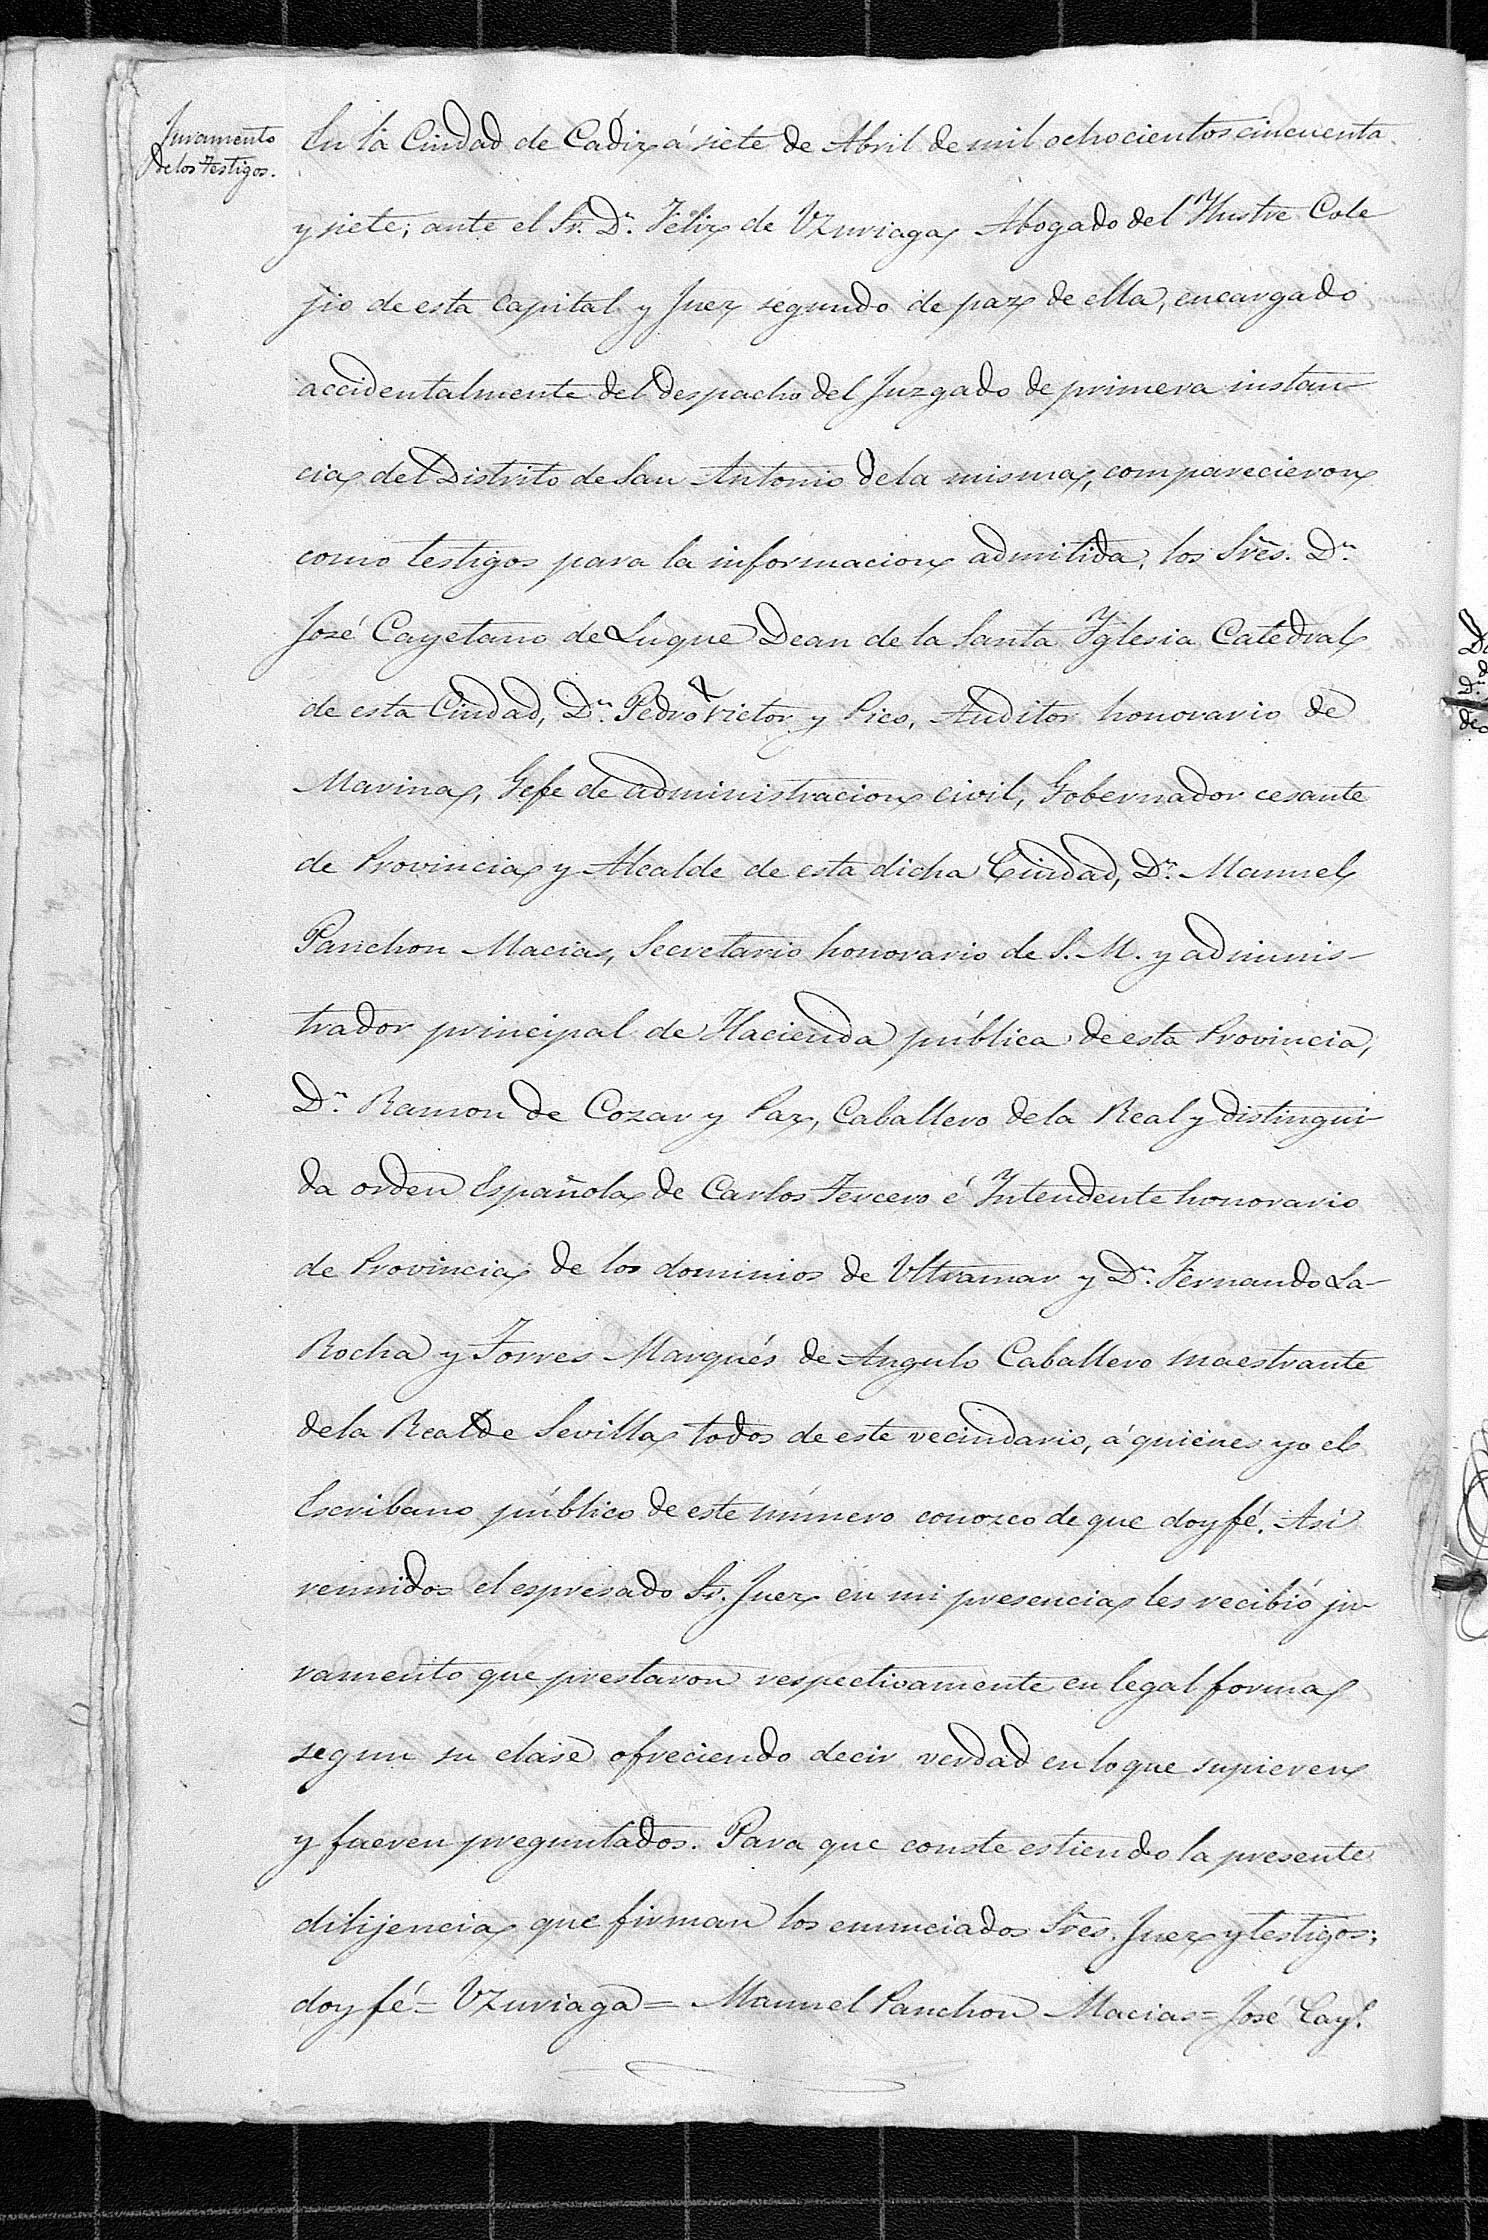 Juramento
de los testigos.
En la Ciudad de Cádiz á siete de Abril de mil ochocientos cincuenta
y siete; ante el Sr. Dn. Félix de Uzuriaga, Abogado del Ylustre Cole
jio de esta capital y Juez segundo de paz de ella, encargado
accidentalmente del despacho del Juzgado de primera instan-
cia del Distrito de San Antonio de la misma, comparecieron
como testigos para la informacion admitida, los Sres. Dn.
José Cayetano de Luque Dean de la Santa Yglesia Catedral
de esta Ciudad, Dn. Pedro Victor y Pico, Auditor honorario de
Marina, Gefe de administracion civil, Gobernador cesante
de Provincia y Alcalde de esta dicha Ciudad, Dn. Manuel
Panchon Macias, Secretario honorario de S. M. y adminis-
trador principal de Hacienda pública de esta Provincia,
Dn. Ramon de Cozar y Paz, Caballero de la Real y distingui-
da orden Española de Carlos Tercero é Yntendente honorario
de Provincia de los dominios de Ultramar y Dn. Fernando La-
Rocha y Torres Marqués de Angulo Caballero maestrante
de la Real de Sevilla, todos de este vecindario, á quienes yo el
Escribano público de este número conozco de que doy fé. Así
reunidos el espresado Sr. Juez en mi presencia les recibió ju-
ramento que prestaron respectivamente en legal forma
segun su clase ofreciendo decir verdad en lo que supieren
y fueren preguntados. Para que conste estiendo la presente
dilijencia que firman los enunciados Sres. Juez y testigos;
doy fé = Uzuriaga = Manuel Panchon Macias = José Cayo.